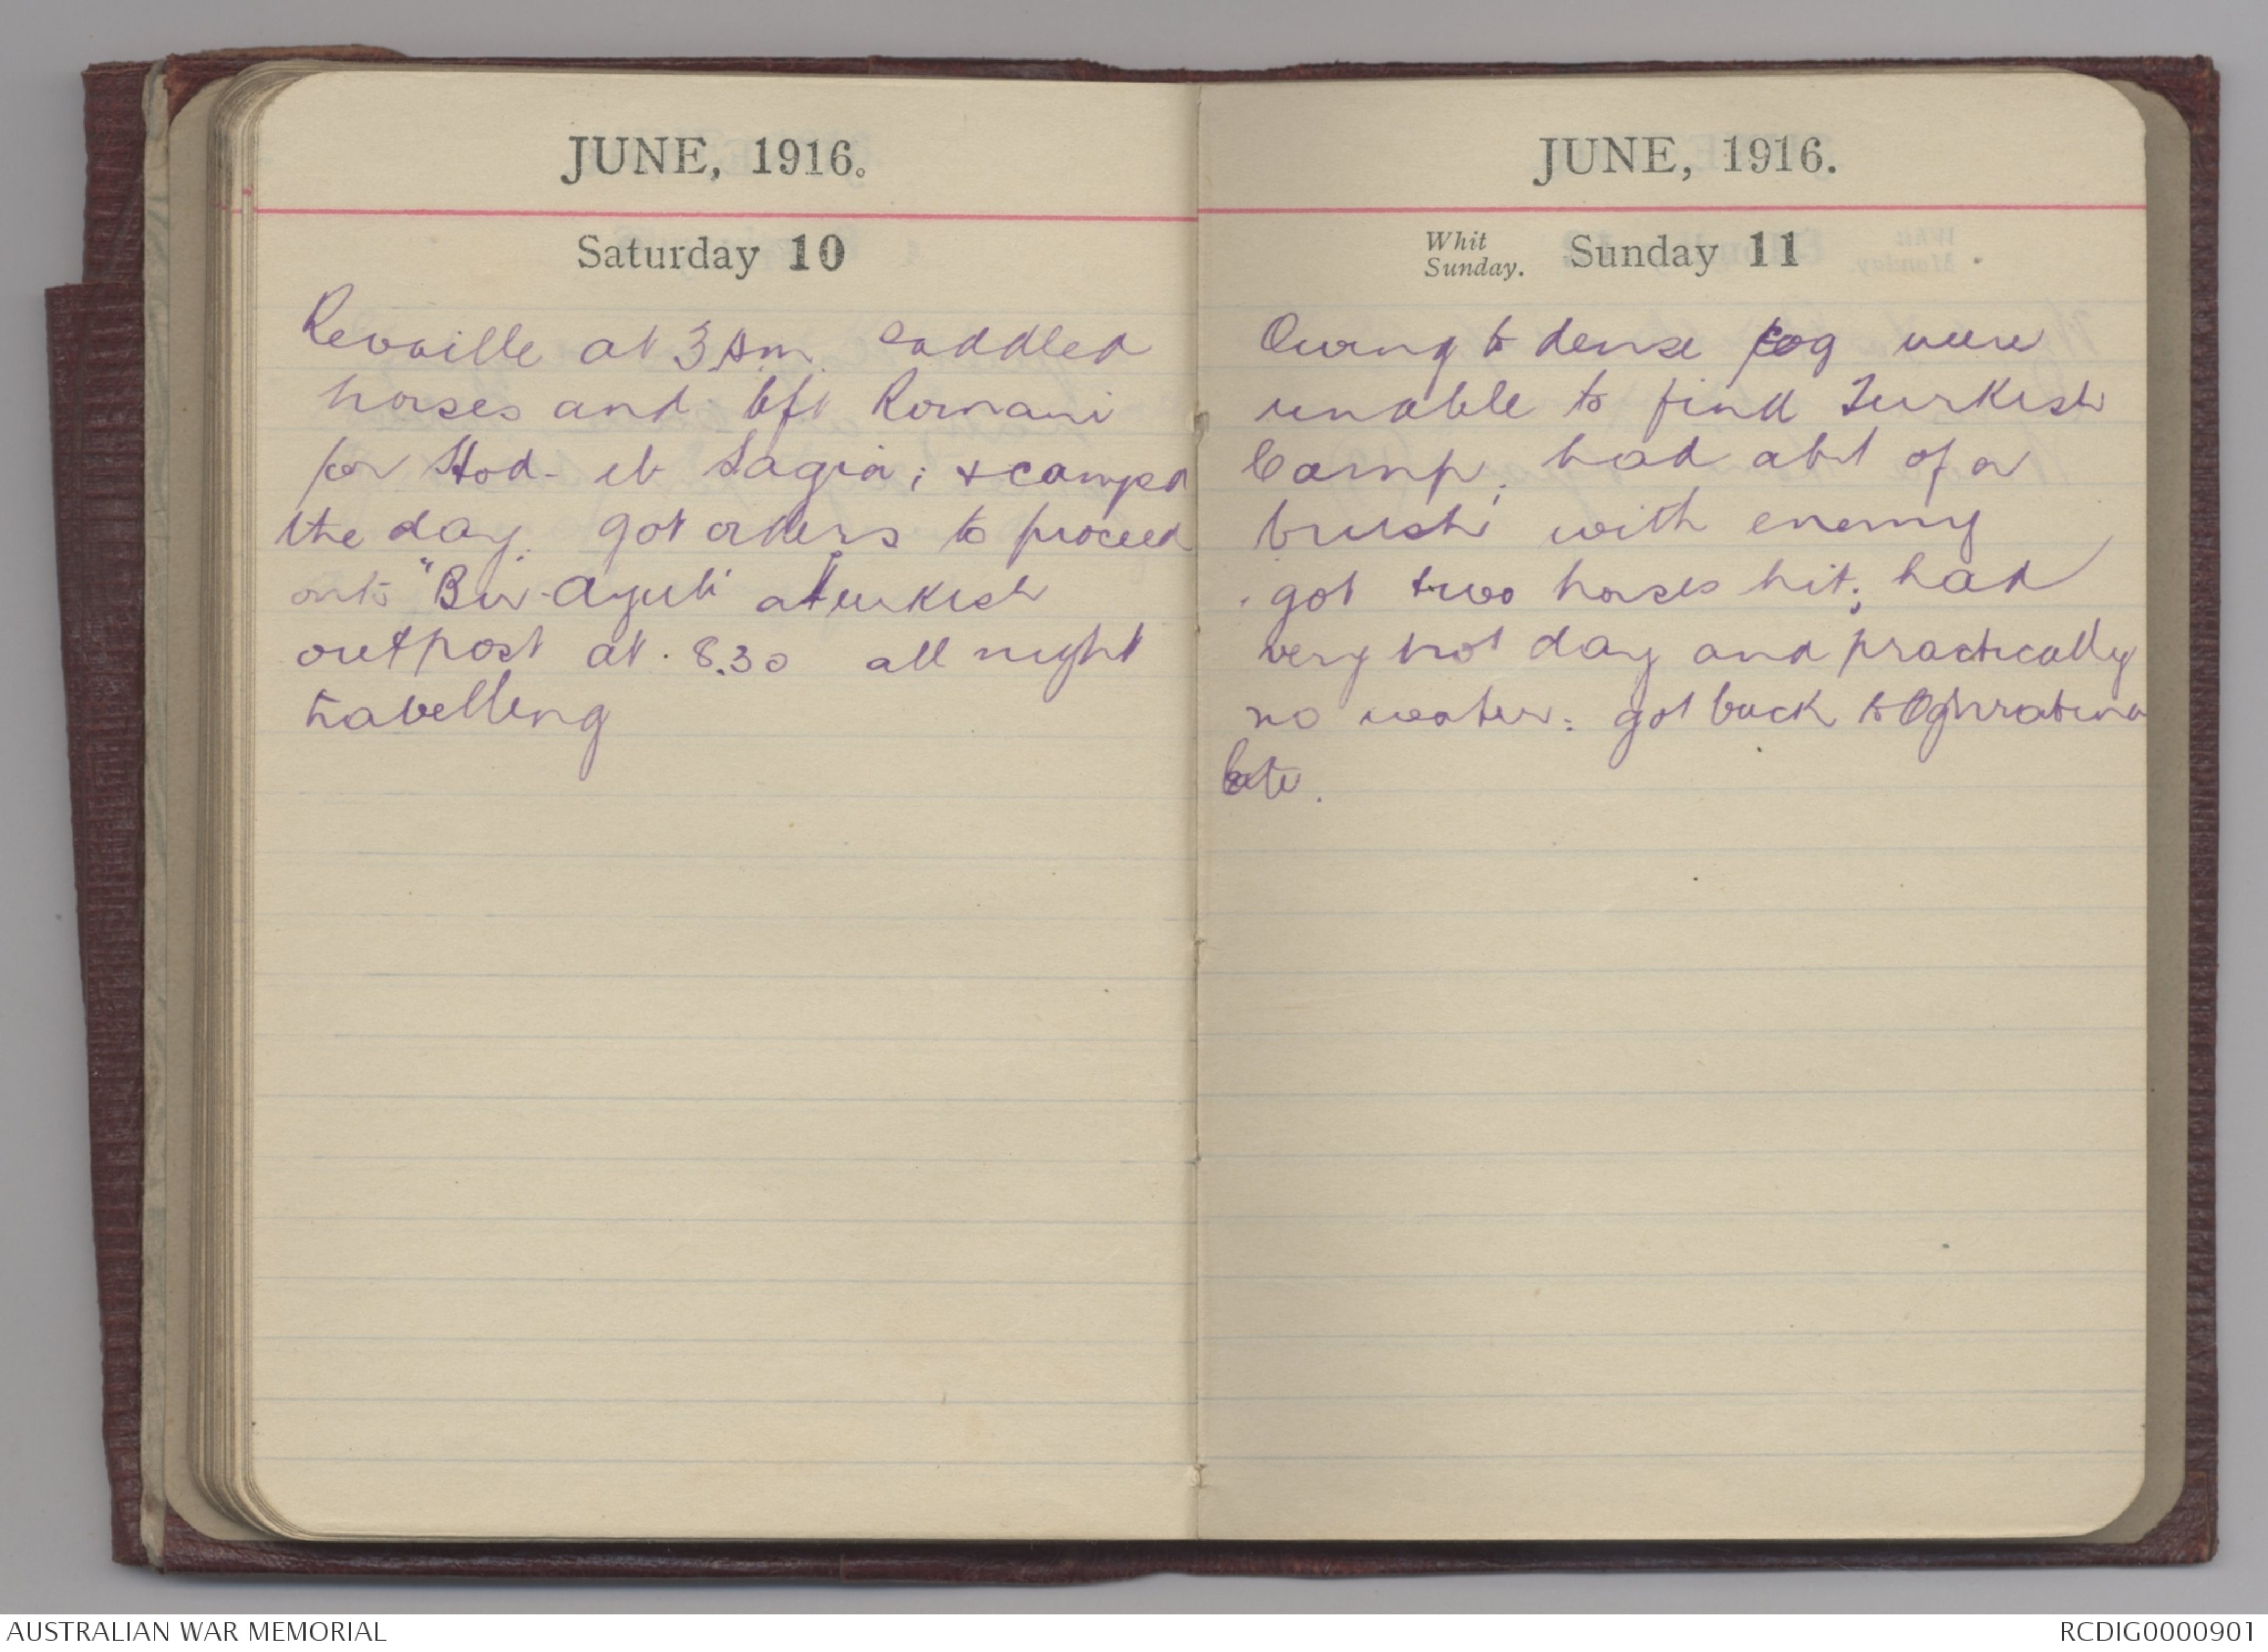 JUNE, 1916.
Saturday 10
Revaille at 3 Am saddled
horses and left Romani
for Hod- el Sagia; & campd
the day. got orders to proceed
onto "Bir-Ayub" a Turkish
outpost at 8.30 all night
travelling
JUNE, 1916.
Whit Sunday. Sunday 11
Owing to dense fog were
unable to find Turkish
Camp; had a bit of a
brush with enemy
got two horses hit; had
very hot day and practically
no water: got back to Oghratina
late.
AUSTRALIAN WAR MEMORIAL
RCDIG0000901